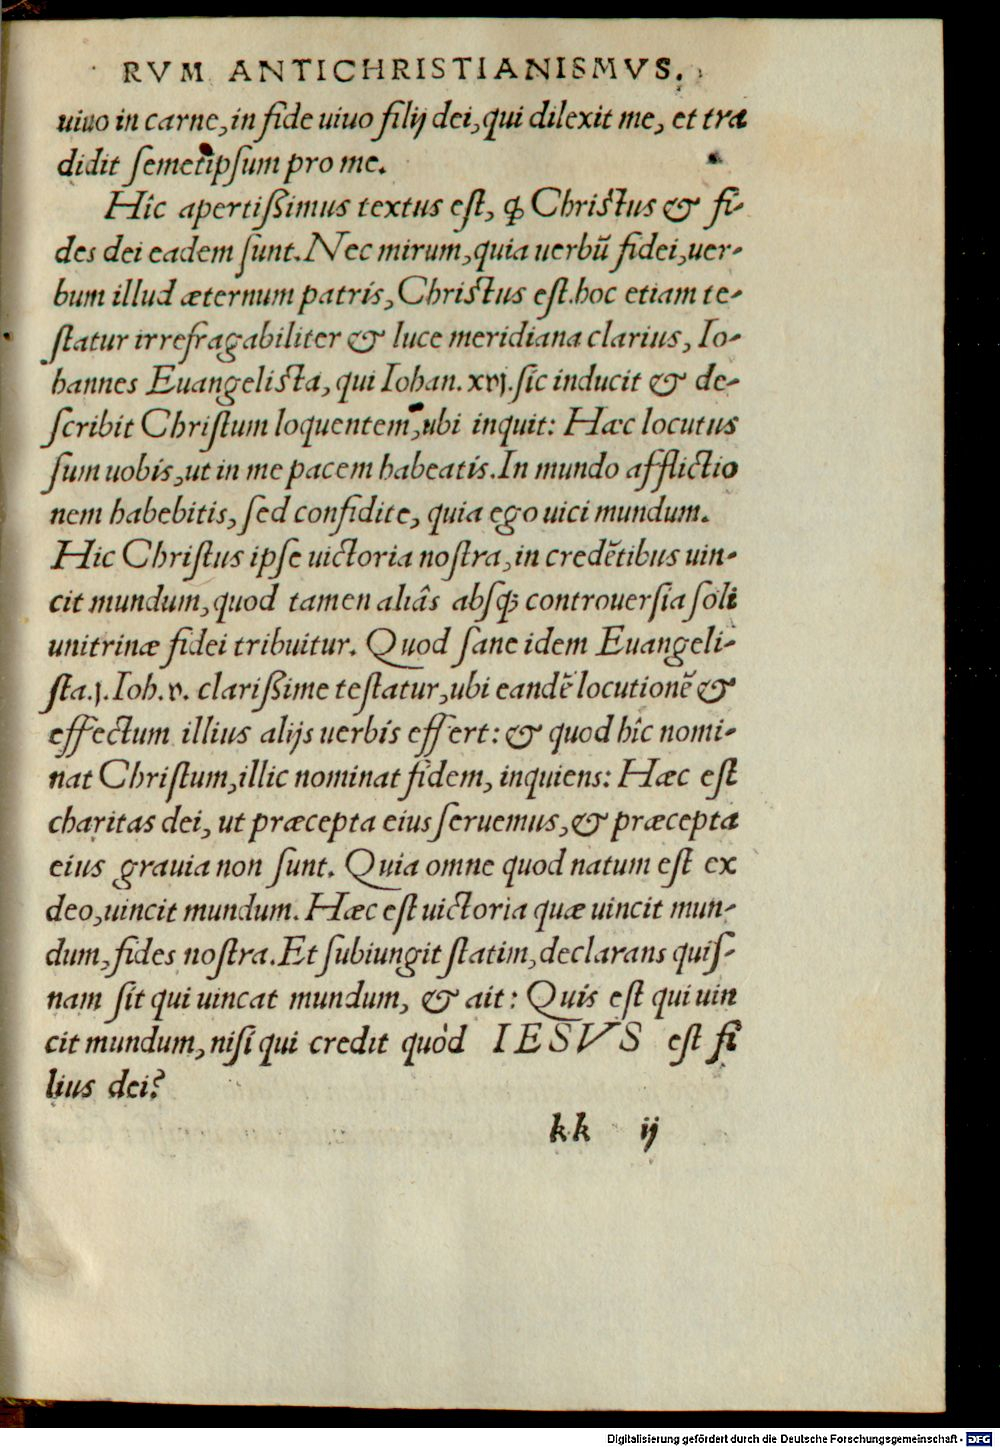 RVM ANTICHRISTIANISMVS.
uiuo in carne, in fide uiuo filij dei, qui dilexit me, et tra
didit semetipsum pro me.
Hîc apertißimus textus est, ꝙ Christus & fi-
des dei eadem sunt. Nec mirum, quia uerbũ fidei, uer-
bum illud æternum patris, Christus est. hoc etiam te-
statur irrefragabiliter & luce meridiana clarius, Io-
hannes Euangelista, qui Iohan. xvj. sic inducit & de-
scribit Christum loquentem, ubi inquit: Hæc locutus
sum uobis, ut in me pacem habeatis. In mundo afflictio
nem habebitis, sed confidite, quia ego uici mundum.
Hic Christus ipse uictoria nostra, in credẽtibus uin-
cit mundum, quod tamen aliâs absq; controuersia soli
unitrinæ fidei tribuitur. Quod sane idem Euangeli-
sta. j. Ioh. v. clarißime testatur, ubi eandẽ locutionẽ &
effectum illius alijs uerbis effert: & quod hîc nomi-
nat Christum, illic nominat fidem, inquiens: Hæc est
charitas dei, ut præcepta eius seruemus, & præcepta
eius grauia non sunt. Quia omne quod natum est ex
deo, uincit mundum. Hæc est uictoria quæ uincit mun-
dum, fides nostra. Et subiungit statim, declarans quis-
nam sit qui uincat mundum, & ait: Quis est qui uin
cit mundum, nisi qui credit quòd IESVS est fi
lius dei?
kk ij
Digitalisierung gefördert durch die Deutsche Forschungsgemeinschaft - DFG